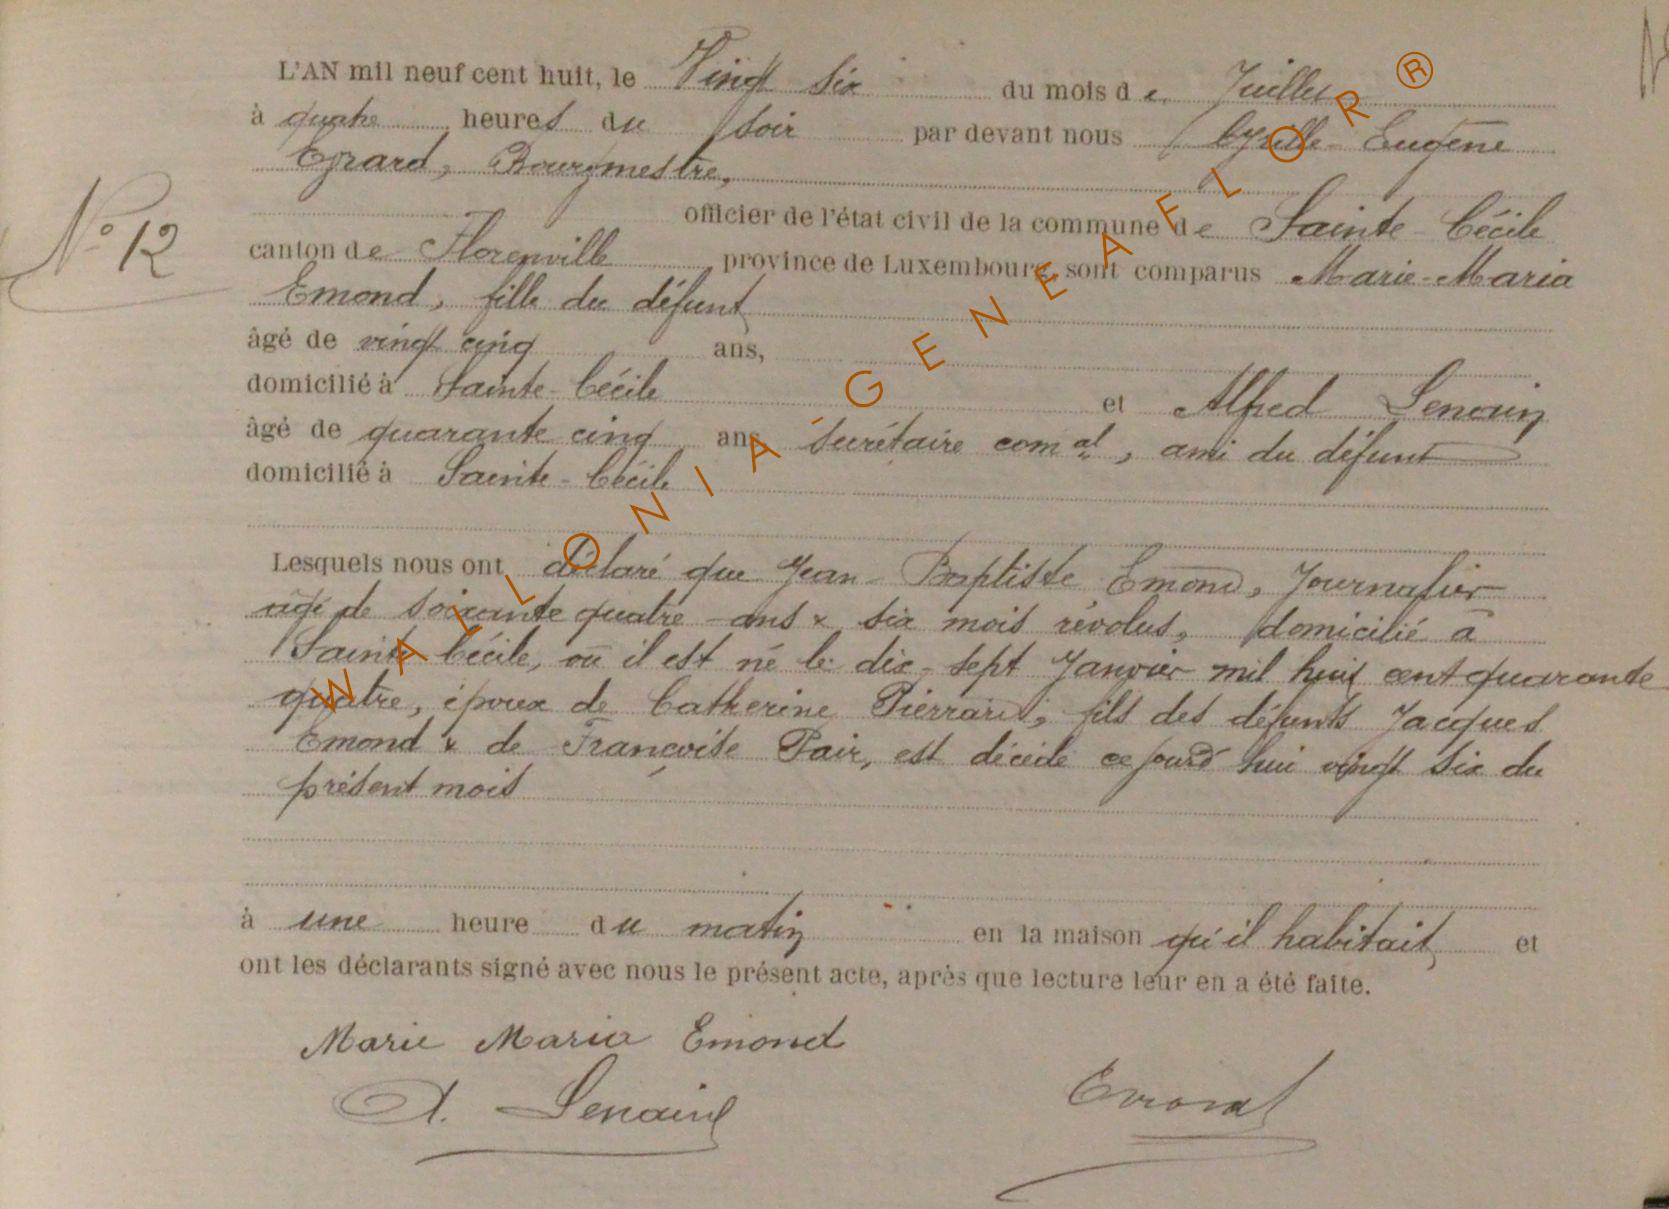 L'AN mil neuf cent huit, le Vingt six du mois de Juillet
à quatre heures du soir par devant nous Cyrille Eugène
Evrard, Bourgmestre,
officier de l'état civil de la commune de Sainte Cécile
N° 12
canton de Florenville province de Luxembourg, sont comparus Marie-Maria
Emond, fille du défunt
âgé de vingt cinq ans,
domicilié à Sainte-Cécile et Alfred Lenain
âgé de quarante cinq ans secrétaire comal, ami du défunt
domicilié à Sainte-Cécile
Lesquels nous ont déclaré que Jean-Baptiste Emond, Journalier
âgé de soixante quatre ans & six mois révolus, domicilié à
Sainte Cécile, où il est né le dix-sept Janvier mil huit cent quarante
quatre, époux de Catherine Pierrard, fils des défunts Jacques
Emond & de Françoise Pair, est décédé ce jourd'hui vingt six du
présent mois
à une heure du matin en la maison qu'il habitait, et
ont les déclarants signé avec nous le présent acte, après que lecture leur en a été faite.
Marie Maria Emond
A. Lenain
Evrard
WALLONIA-GENEAFLOR®